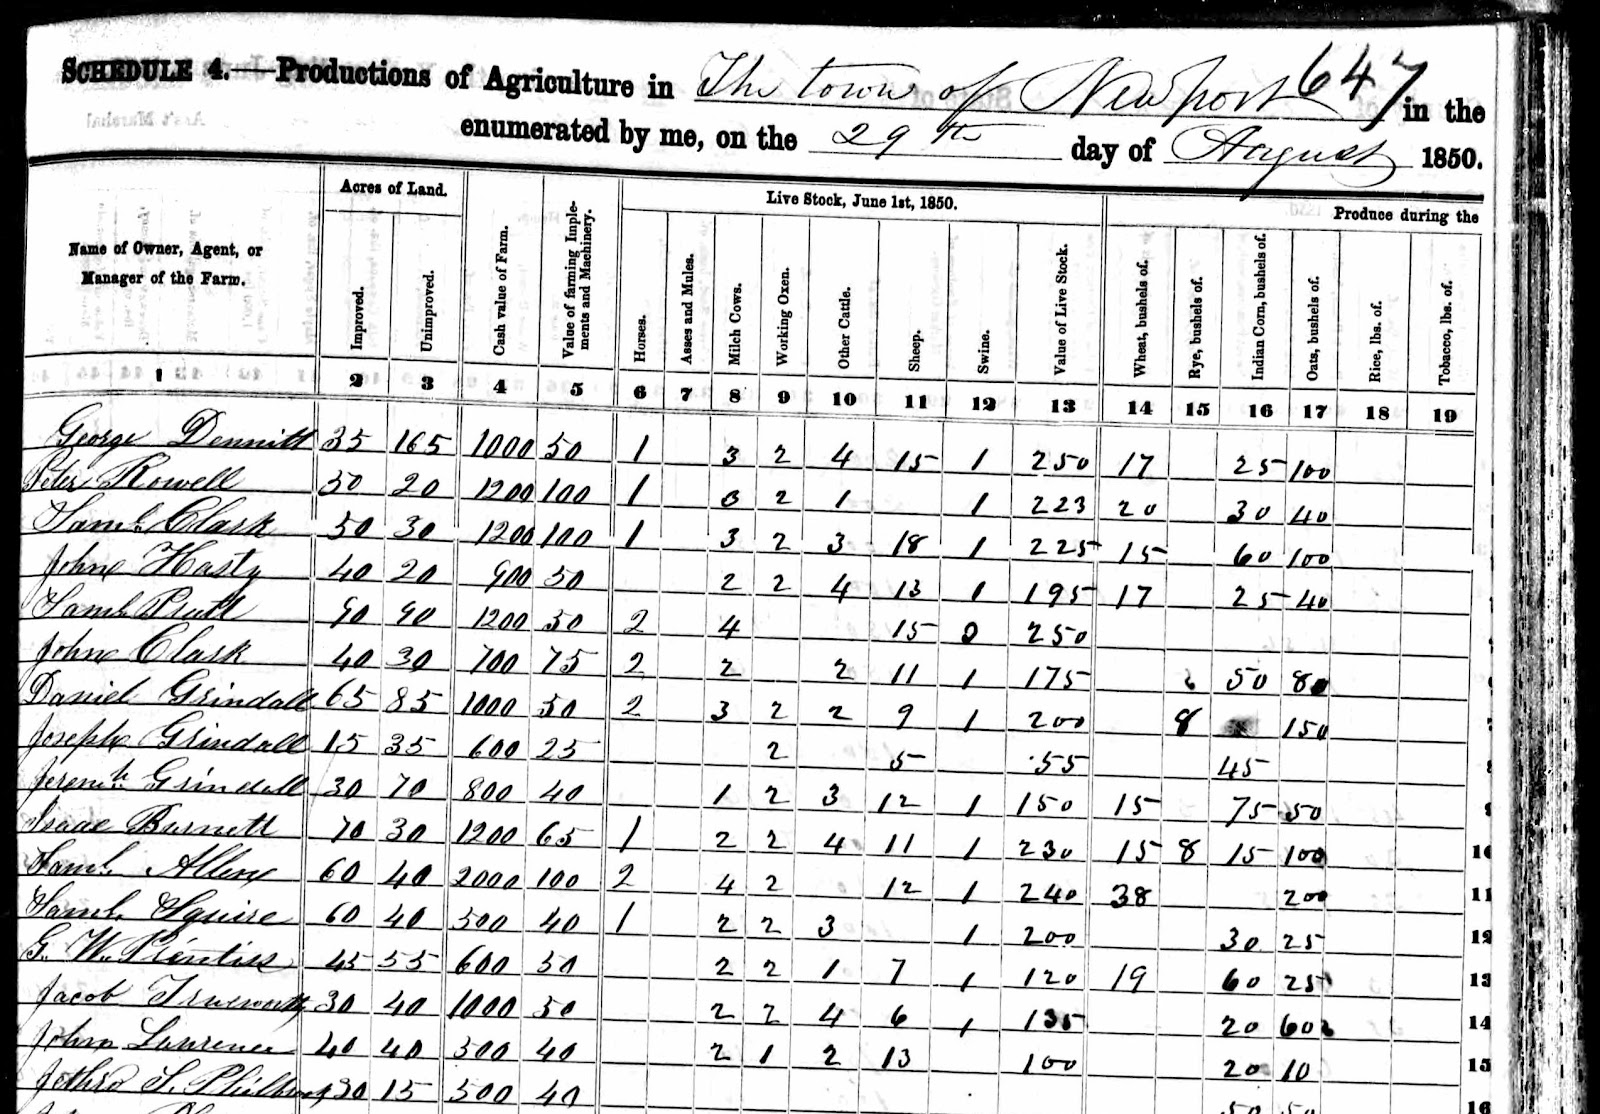 647
SCHEDULE 4.—Productions of Agriculture in The town of Newport in the
enumerated by me, on the 29th day of August 1850.
Name of Owner, Agent, or Manager of the Farm. Acres of Land. Improved. Unimproved. Cash value of Farm. Value of farming Implements and Machinery. Live Stock, June 1st, 1850. Horses. Asses and Mules. Milch Cows. Working Oxen. Other Cattle. Sheep. Swine. Value of Live Stock. Produce during the Wheat, bushels of. Rye, bushels of. Indian Corn, bushels of. Oats, bushels of. Rice, lbs. of. Tobacco, lbs. of.
1 2 3 4 5 6 7 8 9 10 11 12 13 14 15 16 17 18 19
George Dennitt 35 165 1000 50 1 3 2 4 15 1 250 17 25 100
Peter Rowell 20 1200 100 1 2 1 1 223 20 30 40
Saml. Clark 50 30 1200 100 1 3 2 3 18 1 225 15 60 100
John Hasty 40 20 900 50 2 2 4 13 1 195 17 25 40
Saml. 90 90 1200 50 2 4 15 250
John Clark 40 30 700 75 2 2 2 11 1 175 50 80
Daniel Grindall 65 85 1000 50 2 3 2 2 9 1 200 8 150
Joseph Grindall 15 35 600 25 2 5 55 45
Jeremh Grindall 30 70 800 40 1 2 3 12 1 150 15 75 50
Isaac Burnett 70 30 1200 65 1 2 2 4 11 1 230 15 8 15 100 10
Saml. Allen 60 40 2000 100 2 4 2 12 1 240 38 200 11
Saml. Squire 60 40 500 40 1 2 2 3 1 200 30 25 12
G. W. Prentiss 45 55 600 50 2 2 1 7 1 120 19 60 25 13
Jacob Trueworthy 30 40 1000 50 2 2 4 6 1 135 20 14
John Lawrence 40 40 500 40 2 1 2 13 100 20 10 15
Jethro S. Philbrook 30 15 500 40 50 50 16